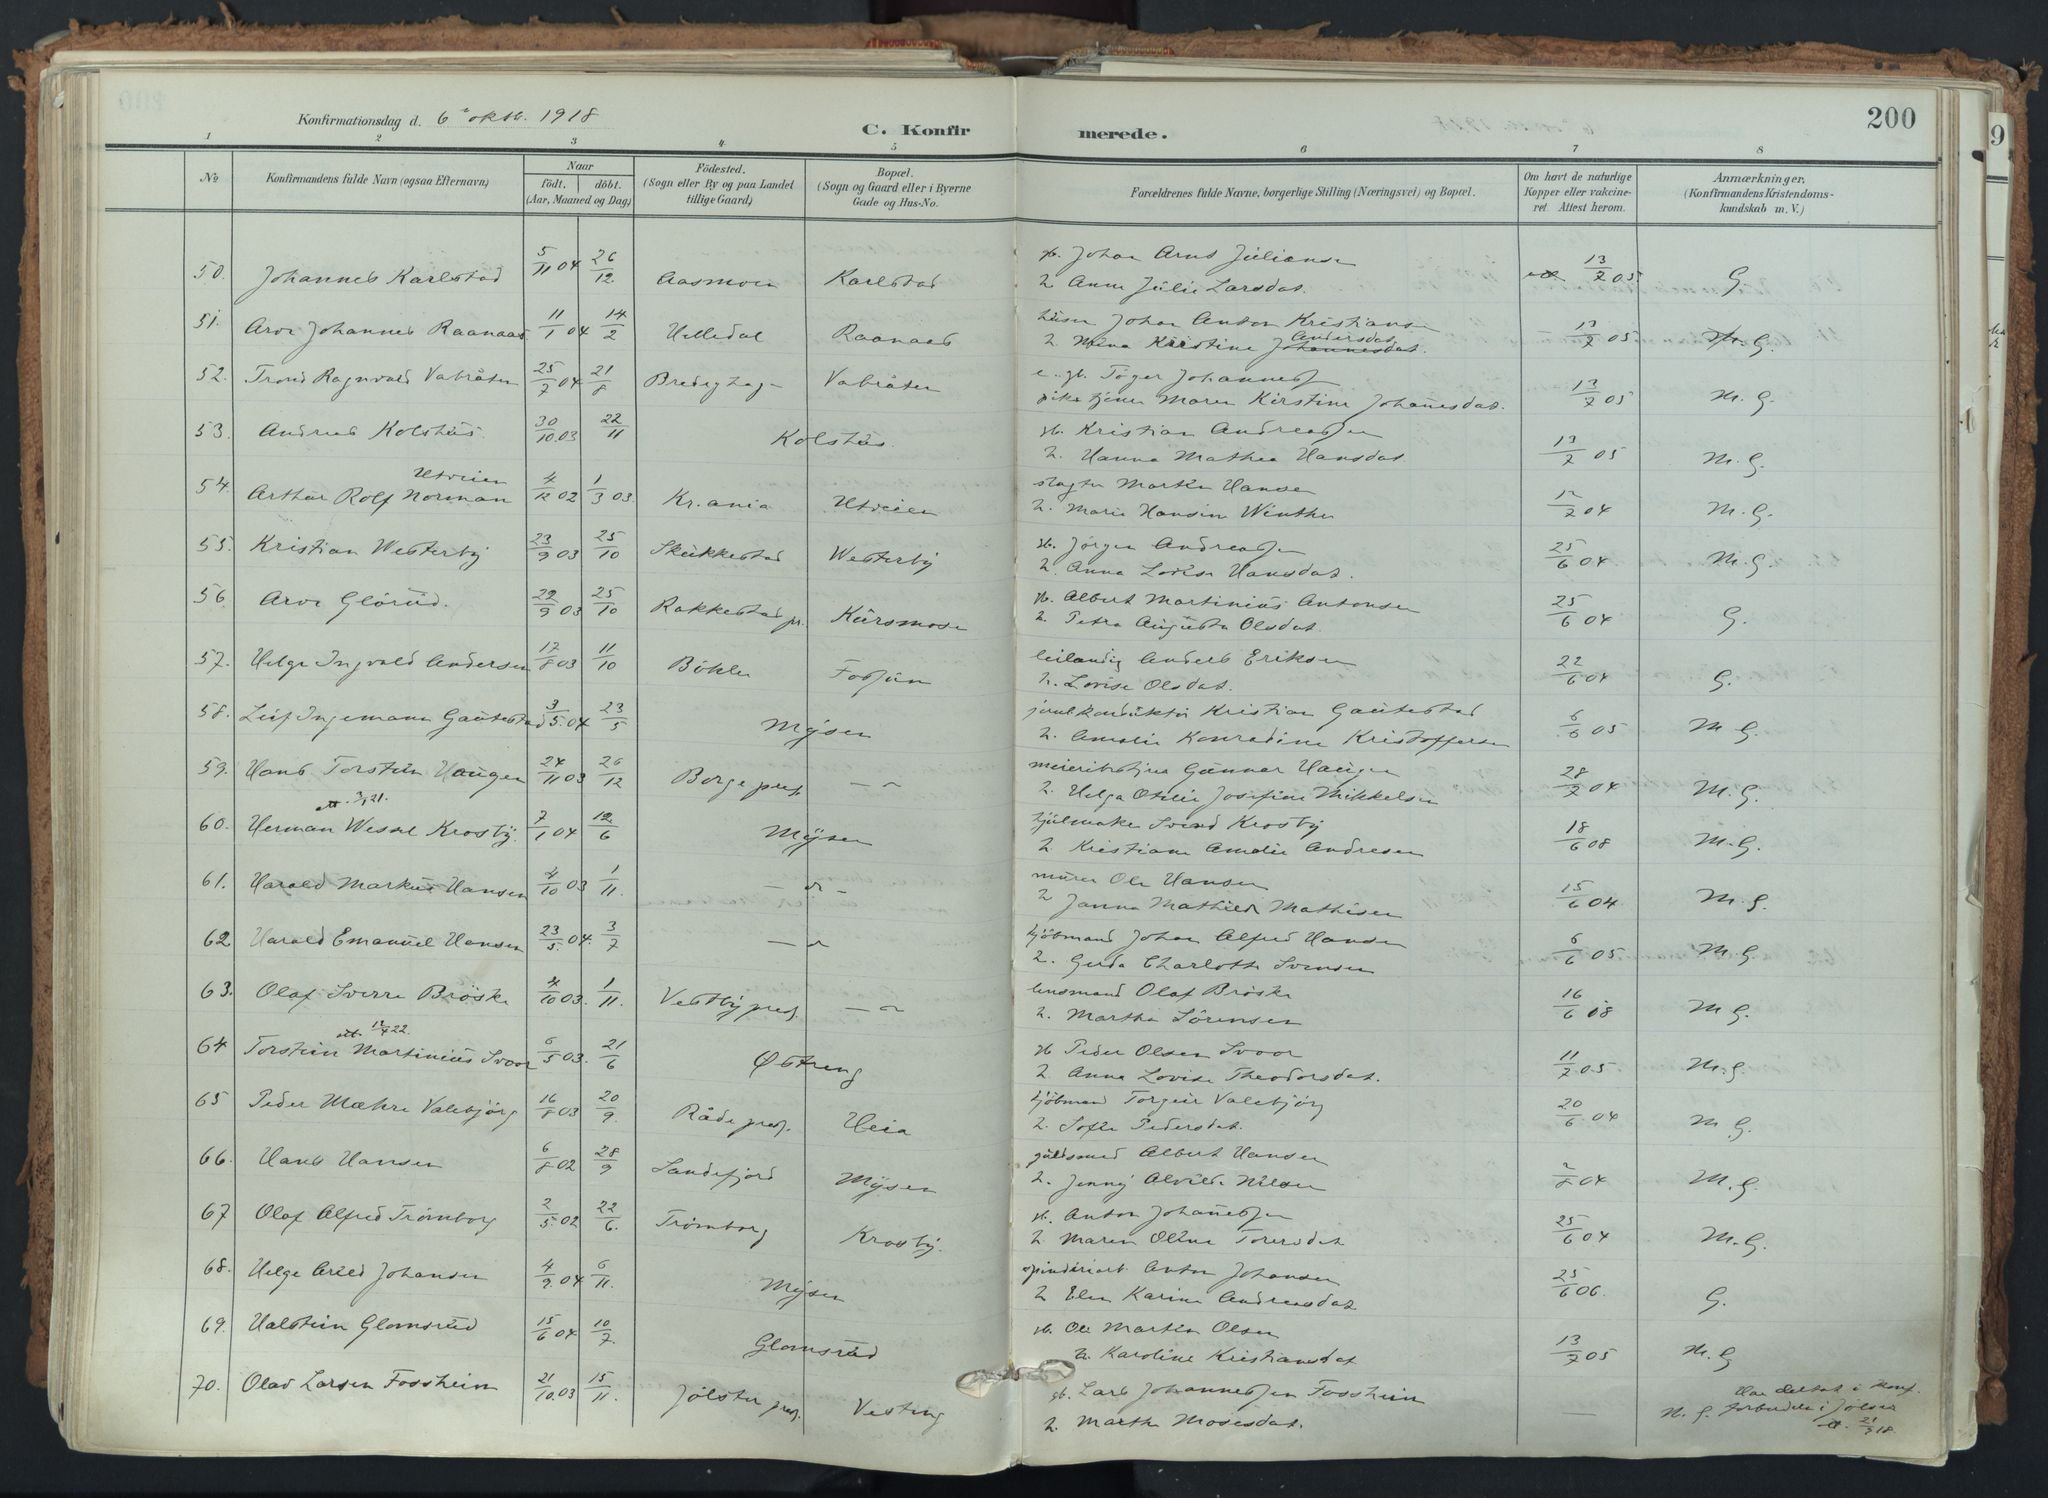 200
Konfirmationsdag d. 6 oktb. 1918
C. Konfirmerede.
1 2 3 4 5 6 7 8
No
Konfirmandens fulde Navn (ogsaa Efternavn)
Naar
födt. döbt.
(Aar, Maaned og Dag)
Födested.
(Sogn eller By og paa Landet
tillige Gaard)
Bopæl.
(Sogn og Gaard eller i Byerne
Gade og Hus-No.
Forældrenes fulde Navne, borgerlige Stilling (Næringsvei) og Bopæl.
Om havt de naturlige
Kopper eller vakcine-
ret. Attest herom.
Anmærkninger.
(Konfirmandens Kristendoms-
kundskab m. V.)
50. Johannes Karlstad 5/11 04 26/12 Aasmoen Karlstad gb. Johan Juliansen 13/7 05 G
h. Anne Julie Larsdat.
51. Arve Johannes Raanaas 11/1 04 14/2 Helledal Raanaas Johan Anton Kristiansen 13/7 05 G.
h. Kristine Johannesdat. Andersdat.
52. Trond Ragnvald Vabråten 25/7 04 21/8 Vabråten Johannes 13/7 05 M. G.
pike tjener Maren Kirstine Johanesdat.
53. Andreas Kolshus. 30/10 03 22/11 Kolshus. gb. Kristian Andreassen 13/7 05 M. G.
h. Hanna Mathea Hansdat.
54. Arthur Rolf Norman Utveien 4/12 02 1/3 03 Kr.ania Utveien slagter Hansen 12/7 04 M. G.
h. Marie Winther
55. Kristian Westerby 23/9 03 25/10 Skukkestad Westerby gb. Jørgen Andreassen 25/6 04 M. G.
h. Anna Lovise Hansdat.
56. Arve Glörud. 22/9 03 25/10 Rakkestad pr. Kursmose gb. Albert Martinius Antonsen 25/6 04 G.
h. Petra Augusta Olsdat.
57. Helge Ingvald Andersen 17/8 03 11/10 Bökler Fosjun leilandig Anders Eriksen 22/6 04 G.
h. Lovise Olsdat.
58. Leif Ingemann Gautestad 3/5 04 23/5 Mysen Kristian Gautestad 6/6 05 M G.
h. Amalie Konradine Kristoffersen
59. Hans Torstein Haugen 24/11 03 26/12 Borge prest. — " — meieribestyrer Gunnar Haugen 28/7 04 M. G.
h. Helga Otelie Josefine Mikkelsen
att. 3/1 21.
60. Herman Wessel Krosby 7/1 04 12/6 Mysen hjulmaker Svend Krosby 18/6 08 M. G.
h. Kristiane Amalie Andresen
61. Harald Markus Hansen 4/10 03 1/11. — " — murer Ole Hansen 15/6 04 M. G.
h. Janna Mathilde Mathisen
62 Harald Emanuel Hansen 23/5 04. 3/7 — " kjöbmand Johan Alfred Hansen 6/6 05 M. G
h. Gerda Charlotte Svensen
63. Olaf Sverre Bröske 4/10 03. 1/11. Vestby prest. — " lensmand Olaf Bröske 16/6 08 M G.
h. Martha Sörensen
att. 12/4 22.
64 Torstein Martinius Svoor 6/5 03. 21/6 Østreng gb Peder Olsen Svoor 11/7 05. M. G
h. Anna Lovise Theodorsdat.
65 Peder Mæhre Valebjørg 16/8 03 20/9. Råde prest. Heia kjöbmand Torgeir Valebjørg 20/6 04 M G.
h. Sofie Pedersdat.
66. Hans Hansen 6/8 02 28/9 Sandefjord Mysen guldsmed Albert Hansen 2/8 04 M. G.
h. Jenny Alvilde Nilsen
67 Olaf Alfred Trömborg 2/5 02 22/6. Trömborg Krosby. gb. Anton Johannessen 25/6 04 M. G.
h. Maren Oline Torersdat
68. Helge Arild Johansen 4/9 04 6/11. Mysen spinderiarb. Anton Johansen 25/6 06. G.
h Elen Karine Andreasdat
69. Halstein Glomsrud 15/6 04 10/7. Glomsrud gb. Ole Martin Olsen 13/7 05 M. G
h. Karoline Kristiansdat
70. Olav Larsen Fossheim 21/10 03 15/11. Jölster prest. Vesteng gb. Lars Johannessen Fossheim — M. G. Har deltat i konf.
h. Marthe Mosesdat. forberedelse i Jölster